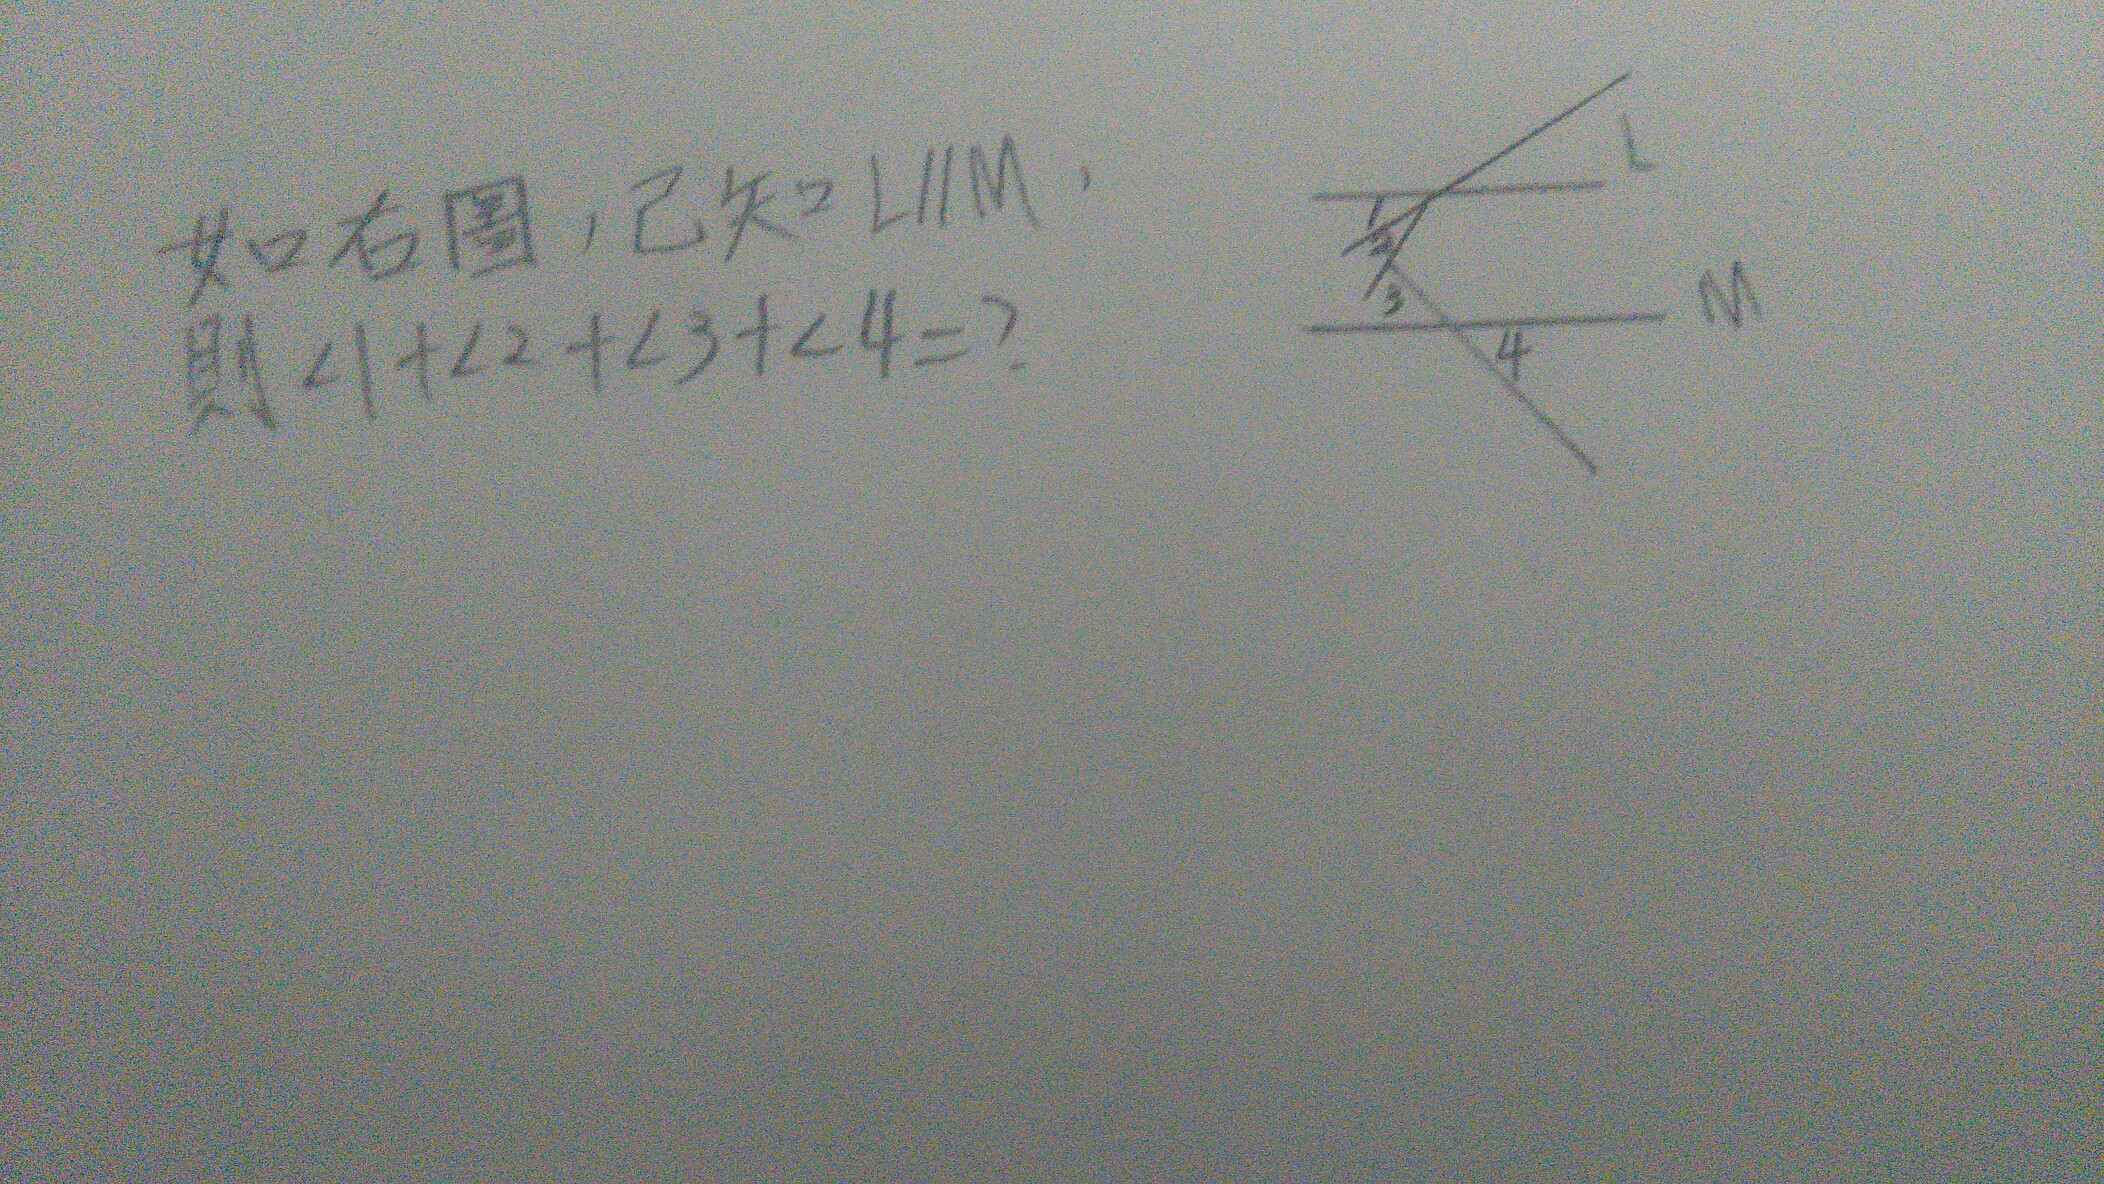 如右圖，已知L//M，
則∠1+∠2+∠3+∠4=？
L
1
2
3
M
4